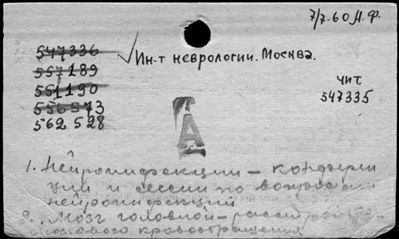 7/7.60 М.Ф.
547336
557189
551190
556573
562528
√ Ин-т неврологии. Москва.
чит
547335
А
1. Нейроинфекции – конферен
ции и сессии по вопросам
нейроинфекций
2. Мозг головной –
кровообращения